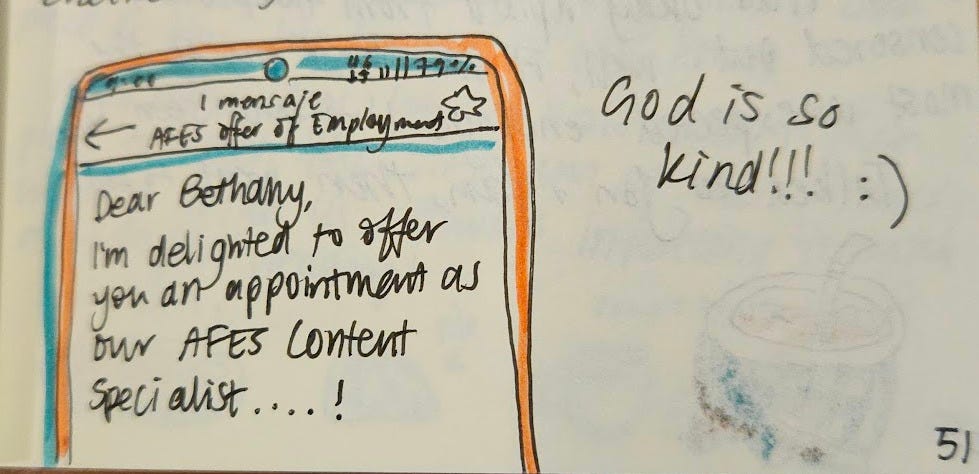 79%
1 mensaje
AFES offer of Employment
Dear Bethany,
I'm delighted to offer
you an appointment as
our AFES Content
Specialist....!
God is so
kind!!! :)
51